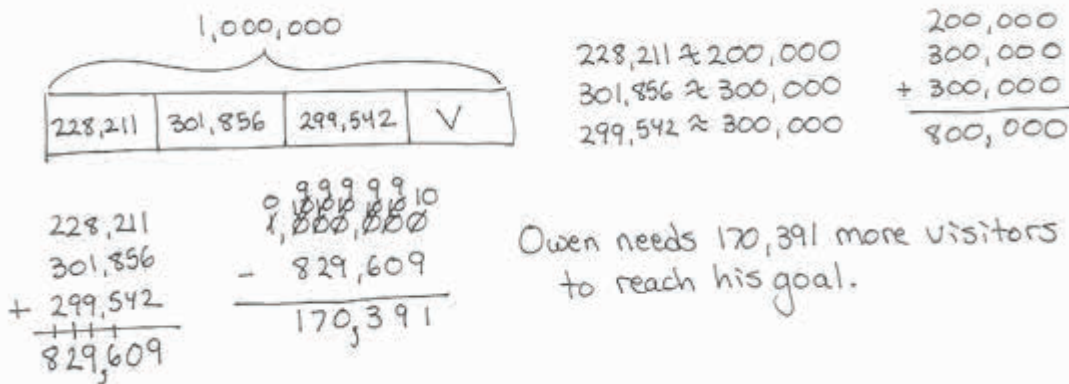 1,000,000
228,211 301,856 299,542 V
228,211 ≈ 200,000
301,856 ≈ 300,000
299,542 ≈ 300,000
200,000
300,000
+ 300,000
800,000
228,211
301,856
+ 299,542
1 1 1 1
829,609
9 9 9 9 9
0 10 10 10 10 10 10
1,000,000
- 829,609
170,391
Owen needs 170,391 more visitors
to reach his goal.